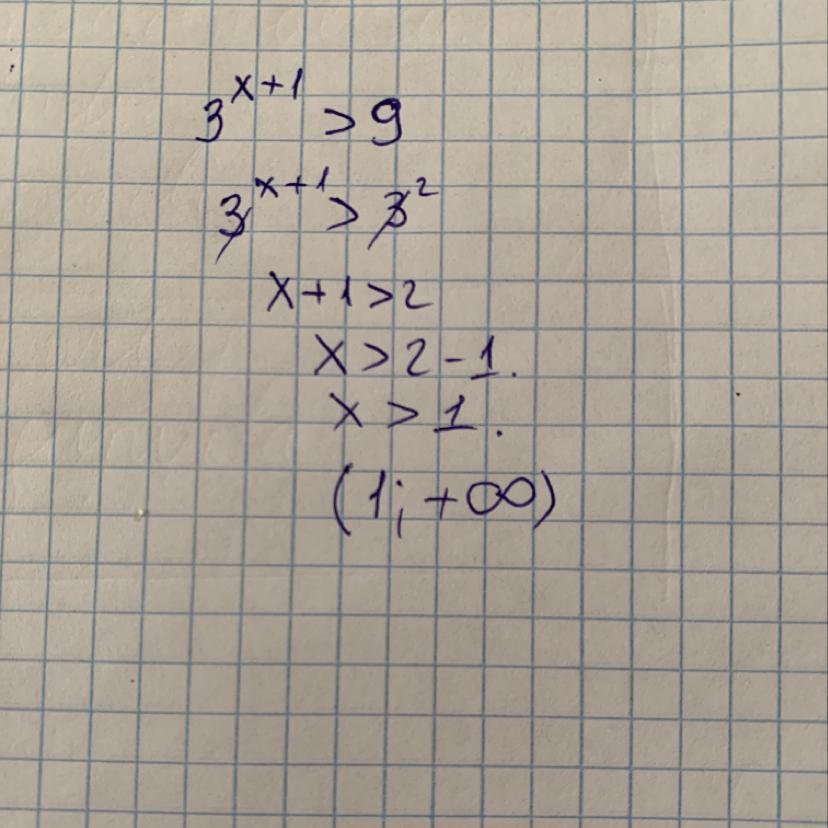 3^{x+1} > 9
3^{x+1} > 3^2
x+1>2
x>2-1.
x > 1.
(1; +∞)